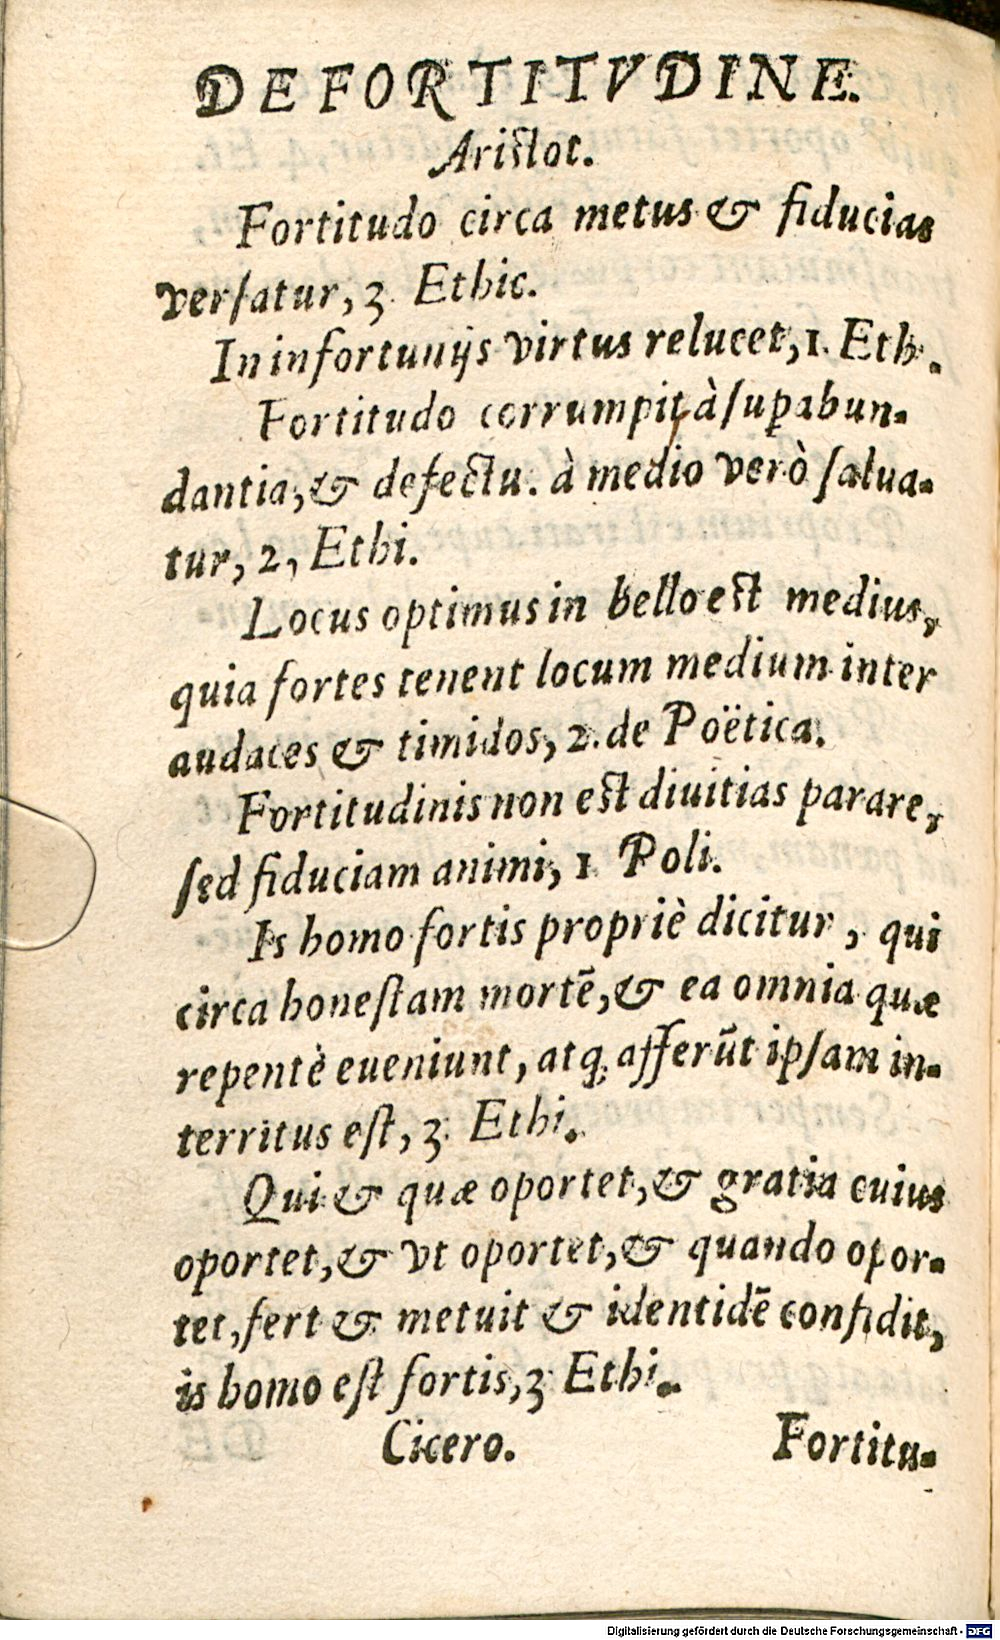 DE FORTITVDINE.
Aristot.
Fortitudo circa metus & fiducias
versatur, 3. Ethic.
In infortunijs virtus relucet, 1. Eth.
Fortitudo corrumpit à suꝑabun-
dantia, & defectu. à medio verò salua-
tur, 2, Ethi.
Locus optimus in bello est medius,
quia fortes tenent locum medium inter
audaces & timidos, 2. de Poëtica.
Fortitudinis non est diuitias parare,
sed fiduciam animi, 1. Poli.
Is homo fortis propriè dicitur, qui
circa honestam mortẽ, & ea omnia quæ
repentè eueniunt, atq; afferũt ipsam in-
territus est, 3. Ethi.
Qui & quæ oportet, & gratia cuius
oportet, & vt oportet, & quando opor-
tet, fert & metuit & identidẽ confidit,
is homo est fortis, 3 Ethi.
Cicero. Fortitu-
Digitalisierung gefördert durch die Deutsche Forschungsgemeinschaft - DFG